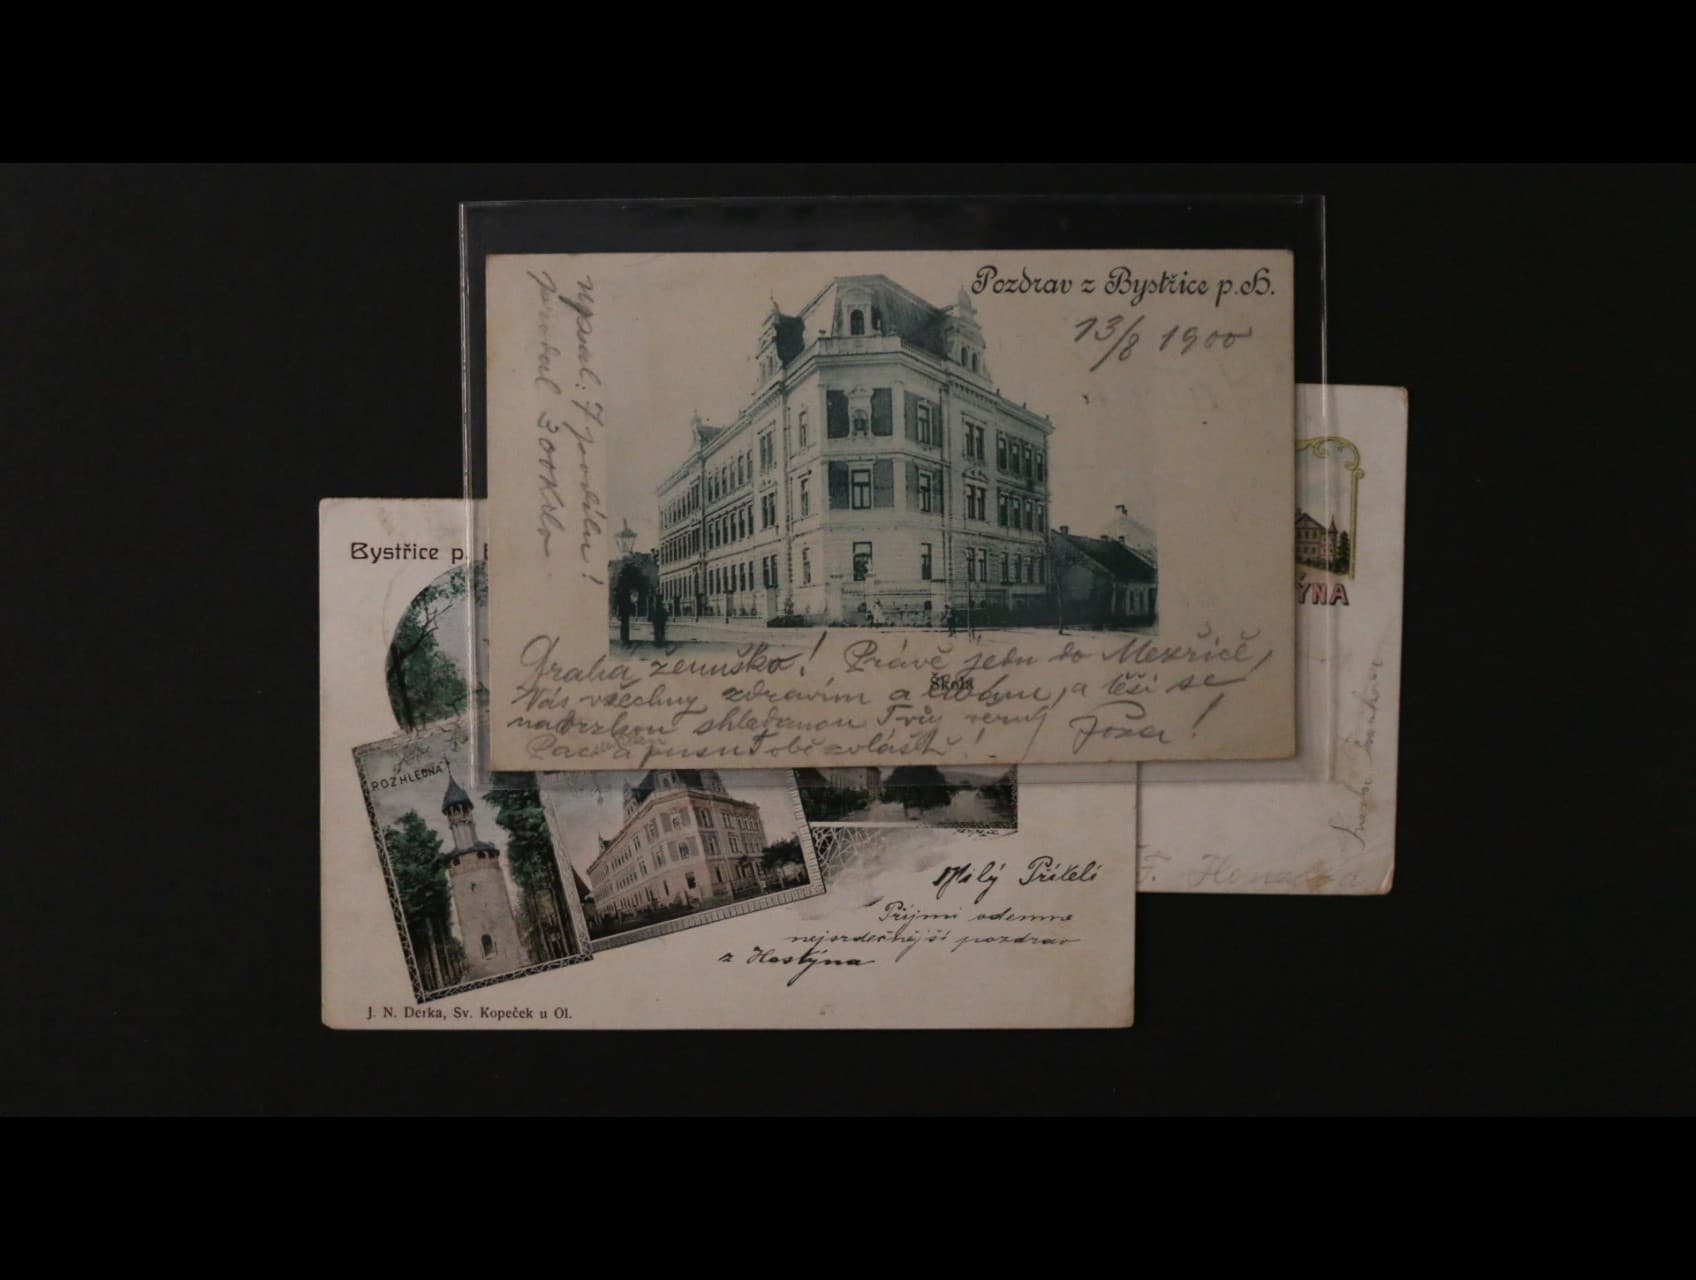 Pozdrav z Bystřice p. H.
13/8 1900
Drahá ženuško! Právě jedu do Meziříčí,
Vás všechny zdravím a líbám, a těší se
na brzkou shledanou Tvůj věrný
Pac a pusu Tobě zvláště!
Škola
prodal 300
Bystřice p.
ROZHLEDNA
Milý Příteli
Přijmi odemne
nejsrdečnější pozdrav
z Hostýna
J. N. Derka, Sv. Kopeček u Ol.
ÝNA